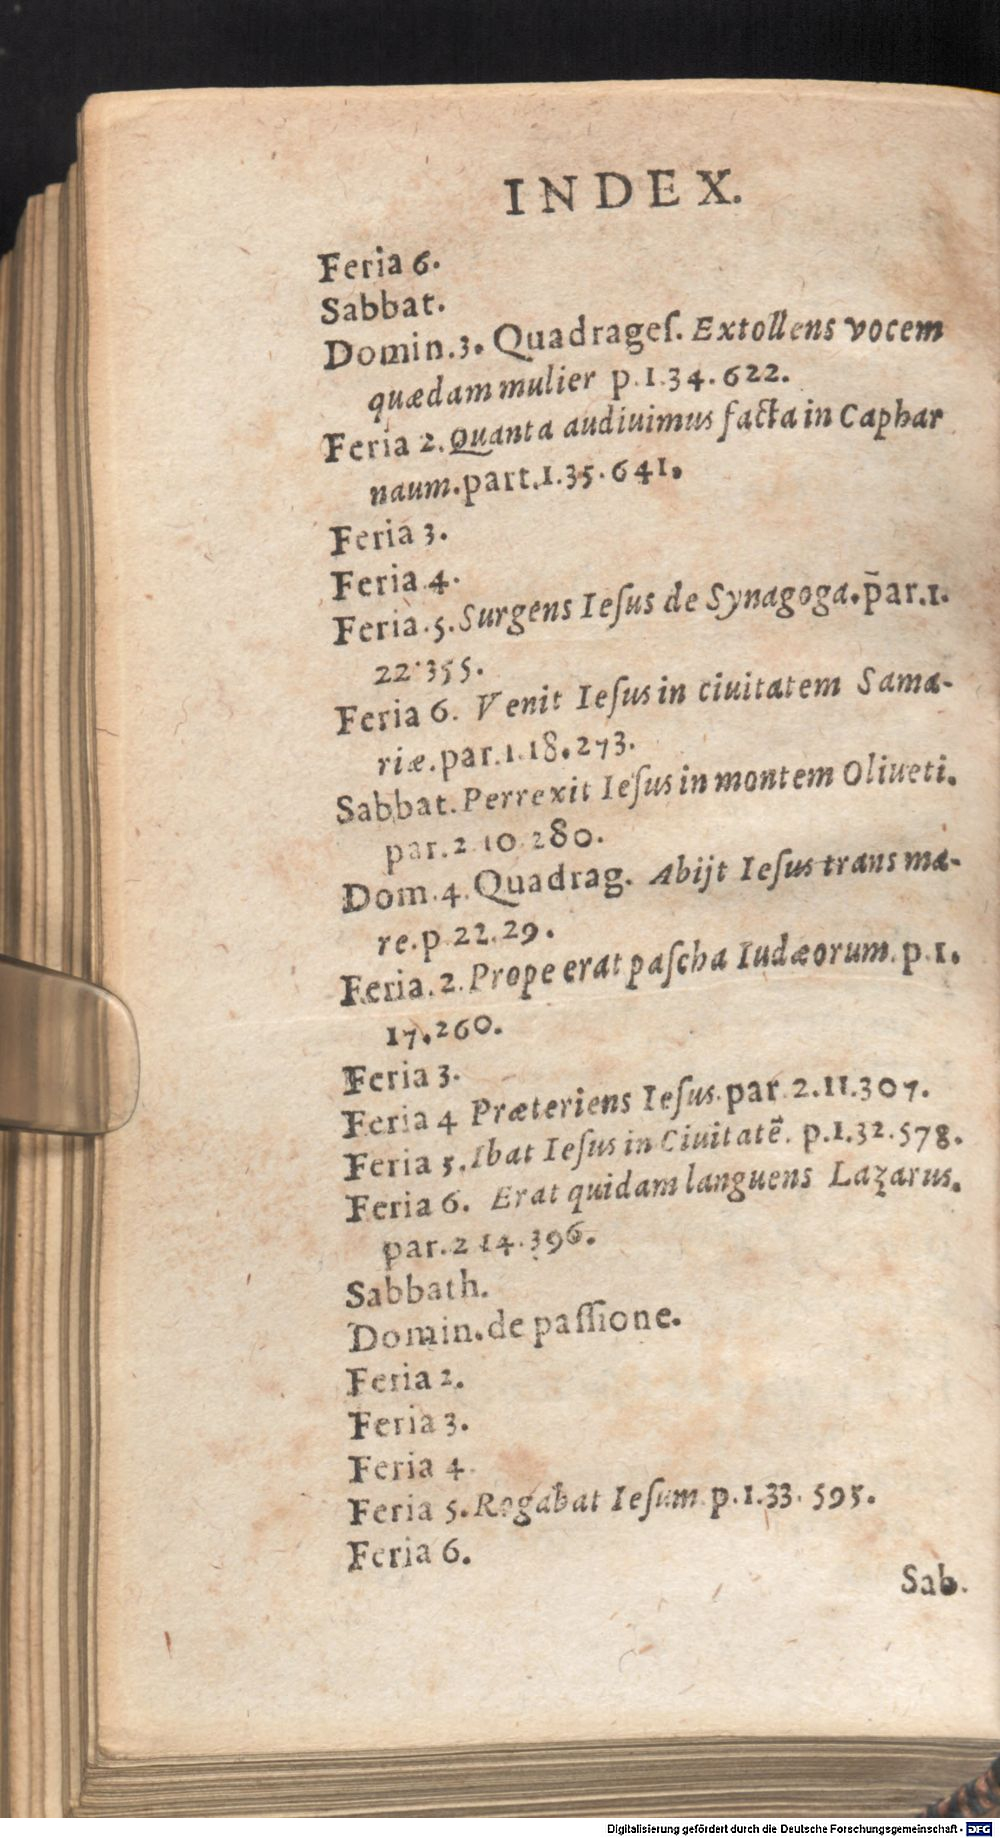 INDEX.
Feria 6.
Sabbat.
Domin.3. Quadrageſ. Extollens vocem
quædam mulier p.1.34.622.
Feria 2. Quanta audiuimus facta in Caphar
naum.part.1.35.641.
Feria 3.
Feria 4.
Feria.5.Surgens Ieſus de Synagoga.p̄ar.1.
22.355.
Feria 6. Venit Ieſus in ciuitatem Sama-
riæ.par.1.18.273.
Sabbat.Perrexit Ieſus in montem Oliueti.
par.2.10.280.
Dom.4.Quadrag. Abijt Ieſus trans ma-
re.p.22.29.
Feria.2.Prope erat paſcha Iudæorum.p.1.
17.260.
Feria 3.
Feria 4 Præteriens Ieſus.par.2.11.307.
Feria 5.Ibat Ieſus in Ciuitatē. p.1.32.578.
Feria 6. Erat quidam languens Lazarus.
par.2 14.396.
Sabbath.
Domin.de paſſione.
Feria 2.
Feria 3.
Feria 4.
Feria 5.Rogabat Ieſum.p.1.33.595.
Feria 6.
Sab.
Digitalisierung gefördert durch die Deutsche Forschungsgemeinschaft - DFG